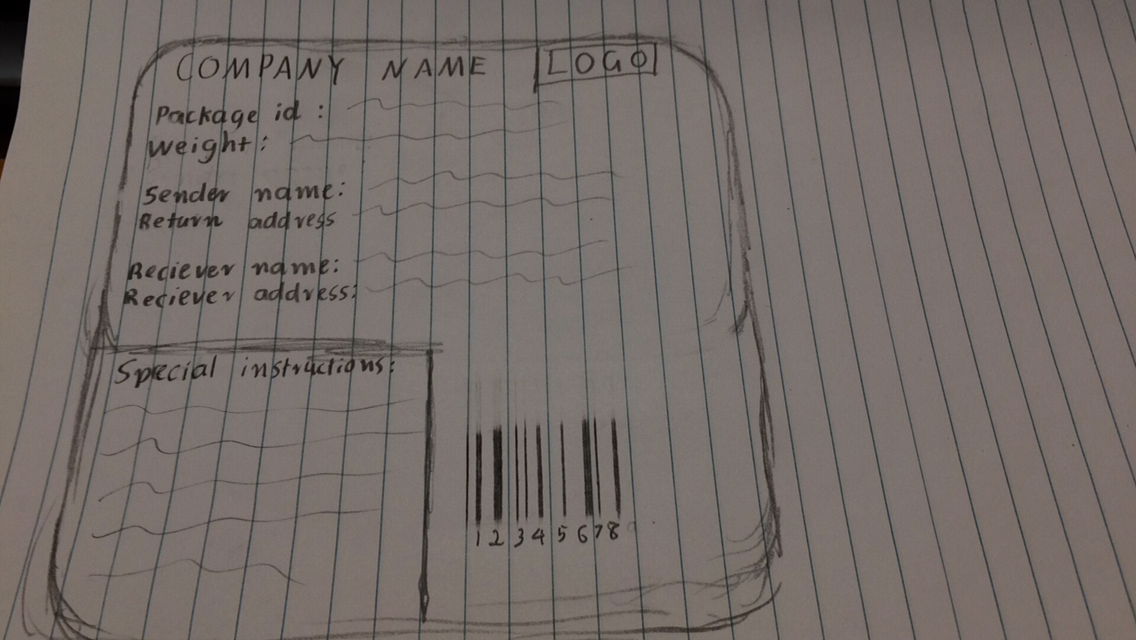 COMPANY NAME LOGO
Package id :
Weight :
Sender name:
Return address
Reciever name:
Reciever address:
Special instructions:
1 2 3 4 5 6 7 8